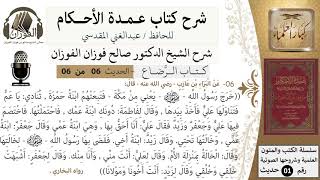 شرح كتاب عمدة الأحكام
للحافظ / عبدالغني المقدسي
شرح الشيخ الدكتور صالح فوزان الفوزان
كتاب الرَّضَاع
الحديث 06 من 06
الفوزان
كبار العلماء
06- عَنْ البَرَاءِ بنِ عَازِبٍ - رضي الله عنه - قال:
((خَرَجَ رَسُولُ اللَّهِ - ﷺ - يَعْنِي مِنْ مَكَّةَ - فَتَبِعَتْهُمْ ابْنَةُ حَمْزَةَ , تُنَادِي: يَا عَمُّ
فَتَنَاوَلَهَا عَلِيٌّ فَأَخَذَ بِيَدِهَا , وَقَالَ لِفَاطِمَةَ: دُونَكِ ابْنَةَ عَمِّكِ , فَاحْتَمَلَتْهَا. فَاخْتَصَمَ
فِيهَا عَلِيٌّ وَجَعْفَرٌ وَزَيْدٌ. فَقَالَ عَلِيٌّ: أَنَا أَحَقُّ بِهَا , وَهِيَ ابْنَةُ عَمِّي. وَقَالَ جَعْفَرٌ: ابْنَةُ
عَمِّي , وَخَالَتُهَا تَحْتِي. وَقَالَ زَيْدٌ: ابْنَةُ أَخِي. فَقَضَى بِهَا رَسُولُ اللَّهِ - ﷺ - لِخَالَتِهَا
وَقَالَ: الْخَالَةُ بِمَنْزِلَةِ الأُمِّ. وَقَالَ لِعَلِيٍّ: أَنْتَ مِنِّي , وَأَنَا مِنْكَ. وَقَالَ لِجَعْفَرٍ: أَشْبَهْتَ
خَلْقِي وَخُلُقِي. وَقَالَ لِزَيْدٍ: أَنْتَ أَخُونَا وَمَوْلانَا)) رواه البخاري
سلسلة الكتب والمتون
العلمية وشروحها الصوتية
رقم 01 حديث